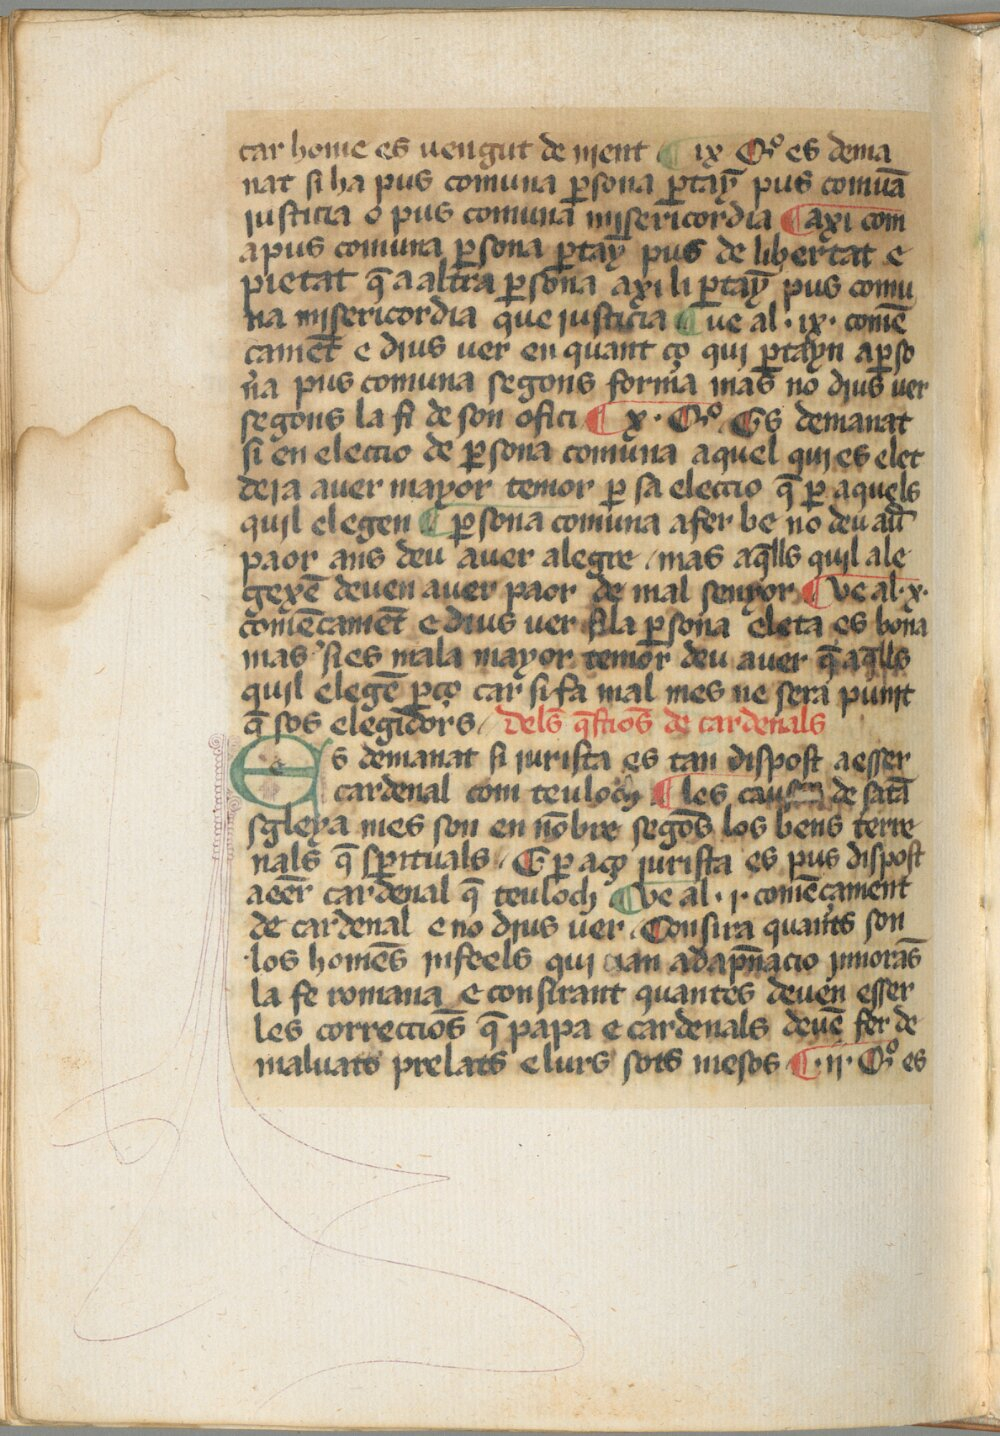 car home es vengut de nient ¶ ix Qo es dema
nat si ha pus comuna ꝑsona ꝑtaȳ pus comuā
iusticia o pus comuna misericordia ¶ axi com
a pus comuna ꝑsona ꝑtaȳ pus de libertat e
pietat q̄ a altra ꝑsona axi li ꝑtaȳ pus comu
na misericordia que iusticia ¶ ve al · ix · comē
camēt e dius ver en quant ço qui ꝑtayn a ꝑso
na pus comuna segons forma mas no dius ver
segons la fi de son ofici ¶ x · Qo · Es demanat
si en electio de ꝑsona comuna aquel qui es elet
deia aver mayor temor ꝑ sa electio q̄ ꝑ aquels
quil elegen ¶ ꝑsona comuna a fer be no deu au̅
paor ans deu aver alegre / mas aq̄lls quil ale
gexē deven aver paor de mal senyor ¶ Ve al · x ·
comēcamēt e dius ver si la ꝑsona eleta es bona
mas si es mala mayor temor deu aver q̄ aq̄lls
quil elegē ꝑço car si fa mal mes ne sera punit
q̄ sos elegidors / Dels q̄stiōs de cardenals
Es demanat si iurista es tan dispost a esser
cardenal com teuloch ¶ les de satā
sgleya mes son en nōbre segōs los bens terre
nals q̄ spirituals / E ꝑ aço iurista es pus dispost
a eēr cardenal q̄ teuloch ¶ Ve al · i · comēçament
de cardenal e no dius ver / Consira quants son
los homēs infeels qui a dapn̄acio innorās
la fe romana e consirant quantes deven esser
les correctiōs q̄ papa e cardenals devē fer de
maluats prelats e lurs sots mesos ¶ · ii · Qo es